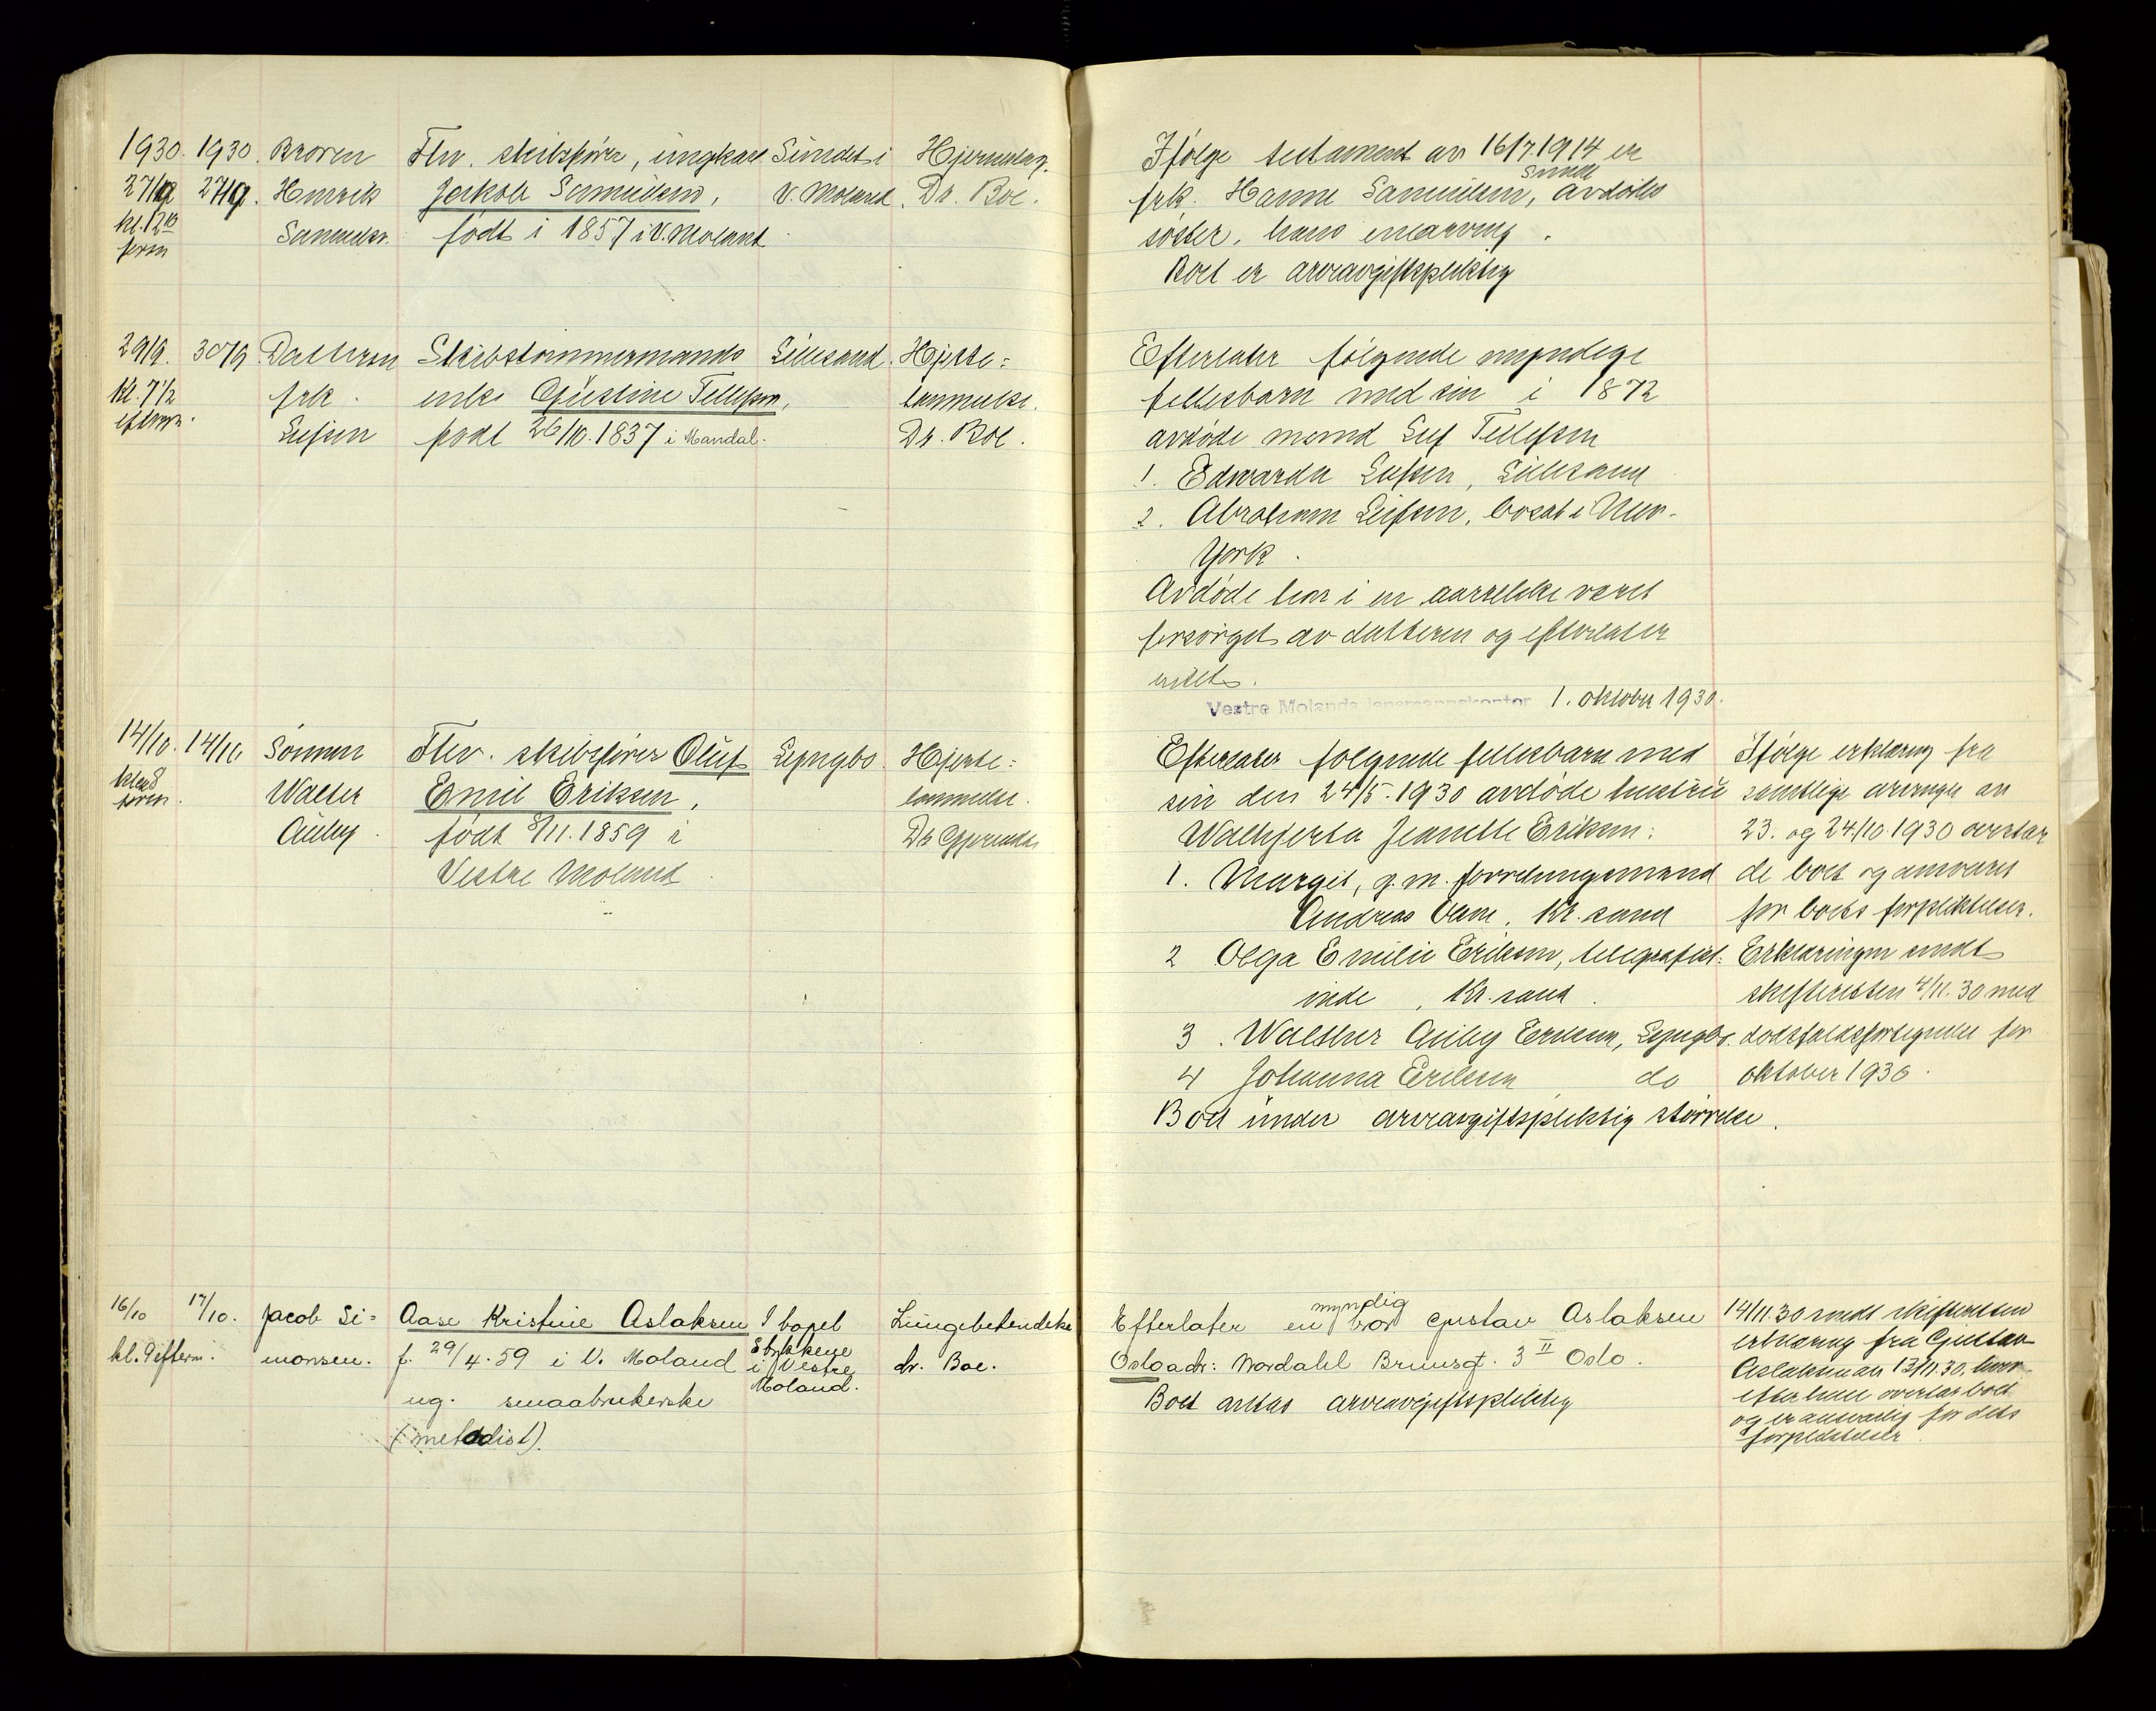 1930. 1930. Broren Fhv. skibsfører, ungkarl Sundet i Hjerneslag.
27/9 27/9. Henrik Jakob Samuelsen, V. Moland. Dr. Boe.
kl. 12 Samuelsn. født i 1857 i V. Moland
form
Ifølge testament av 16/7 1914 er
frk. Hanne Samuelsen, Sundet avdødes
søster, hans enearving.
Boet er arveavgiftspliktig
29/9. 30/9 Datteren Skibstømmermands Lillesand. Hjerte=
kl. 7 1/2 frk. enke Gustine Tellefsen, lammelse.
efterm. Leifsen født 26/10.1837 i Mandal. Dr. Boe.
Efterlater følgende myndige
fellesbarn med sin i 1872
avdøde mand Leif Tellefsen
1. Edvarda Leifsen, Lillesand
2. Abraham Leifsen, bosat i New-
York.
Avdøde har i en aarrekke været
forsørget av datteren og efterlater
intet.
Vestre Molands lensmannskontor 1. oktober 1930.
14/10. 14/10 Sønnen Fhv. skibsfører Oluf Lyngbo. Hjerte=
form. Walter Emil Eriksen, lammelse.
Auby. født 8/11.1859 i Dr.
Vestre Moland
Efterlater følgende fellesbarn med
sin den 24/5.1930 avdøde hustru
Walhjerta Jeanette Eriksen:
1. Margit, g.m. forretningsmand
Andreas Vane, Kr.sand
2 Olga Emilie Eriksen, telegrafist=
inde, Kr.sand.
3. Walther Auby Eriksen, Lyngbo.
4 Johanna Eriksen do
Boet under arveavgiftspliktig størrelse.
Ifølge erklæring fra
samtlige arvinger av
23. og 24/10.1930 overtar
de boet og ansvaret
for boets forpliktelser.
Erklæringen sendt
skifteretten 4/11.30 med
dødsfaldsfortegnelse for
oktober 1930.
16/10 17/10. Jacob Si= Aase Kristine Aslaksen I bopel Lungebetendelse
kl. 9 efterm. monsen. f. 29/4.59 i V. Moland Stykkene i Vestre dr. Boe.
ug. smaabrukerske Moland.
(metodist).
Efterlater en myndig bror Gustav Aslaksen
Oslo adr: Nordahl Brunsgt. 3 II Oslo.
Boet antas arveavgiftspliktig
14/11.30 sendt skifteretten
erklæring fra Gustav
Aslaksen av 13/11.30, hvor=
efter han overtar boet
og er ansvarlig for dets
forpliktelser.